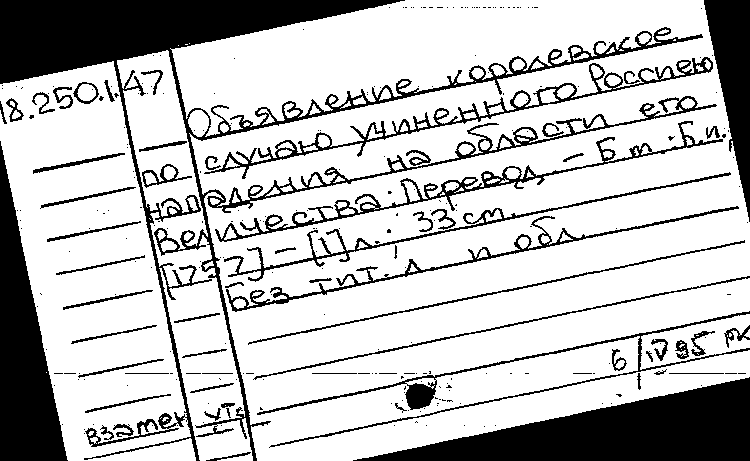 18.250.1.47
Объявление королевское
по случаю учиненного Россиею
нападения на области его
Величества: Перевод. – Б.м.: Б.и.,
[1757] – [1] л.; 33 см.
Без тит. л. и обл.
6/IV 95
взамен